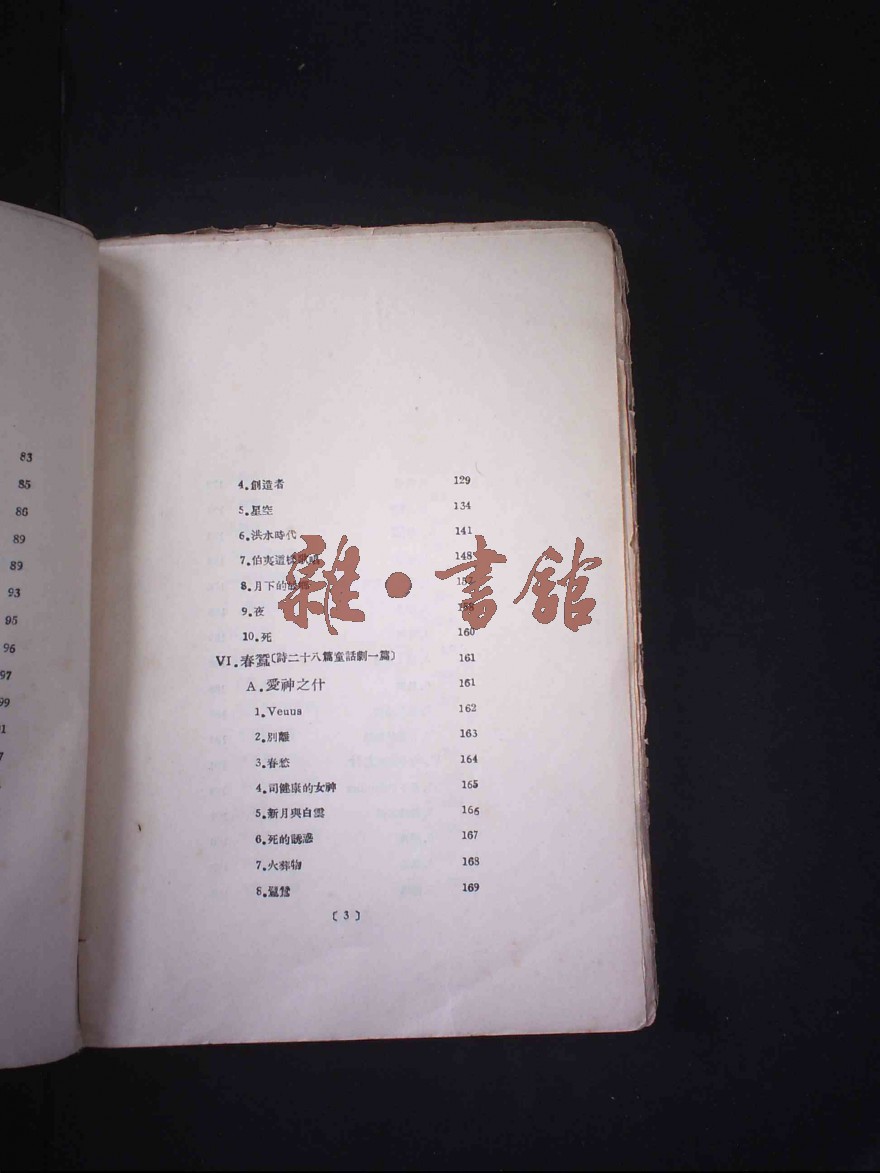 83
85
86
89
89
93
95
96
97
4.創造者 129
5.星空 134
6.洪水時代 141
7.伯夷這樣歌唱 148
8.月下的
9.夜
10.死 160
VI.春蠶〔詩二十八篇童話劇一篇〕 161
A.愛神之什 161
1.Veuus 162
2.別離 163
3.春愁 164
4.司健康的女神 165
5.新月與白雲 166
6.死的誘惑 167
7.火葬物 168
8.鷺鷥 169
〔3〕
雜·書館